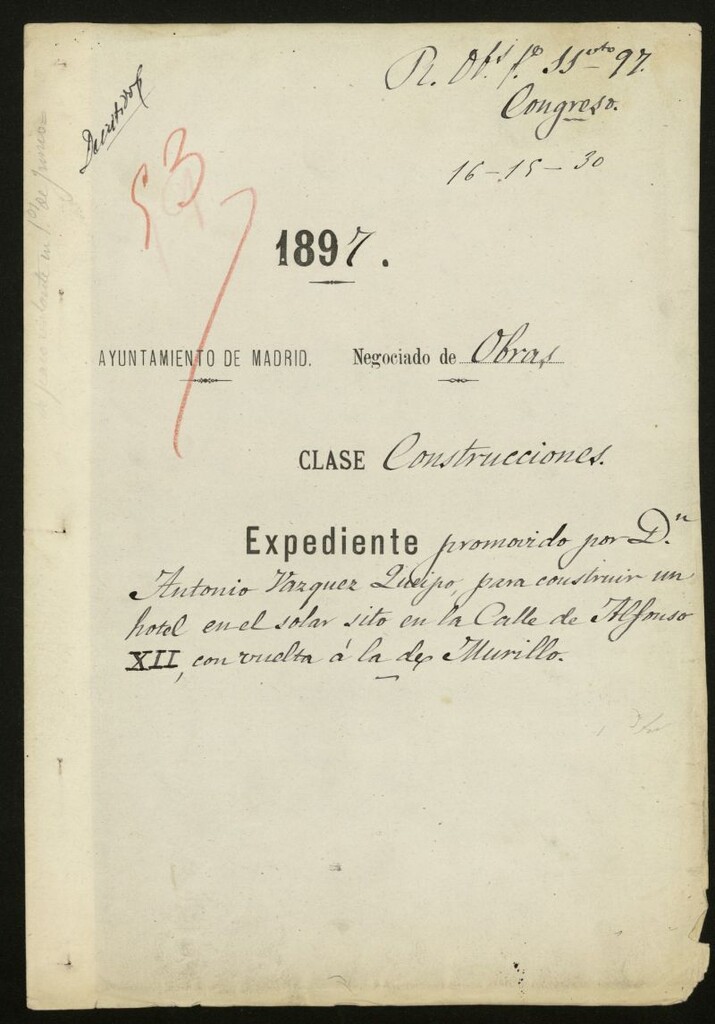 R. Obs fo 11 vto 97.
Congreso.
16-15-30
53
1897.
AYUNTAMIENTO DE MADRID. Negociado de Obras
CLASE Construcciones.
Expediente promovido por Dn
Antonio Vazquez Queipo, para construir un
hotel en el solar sito en la Calle de Alfonso
XII, con vuelta á la de Murillo.